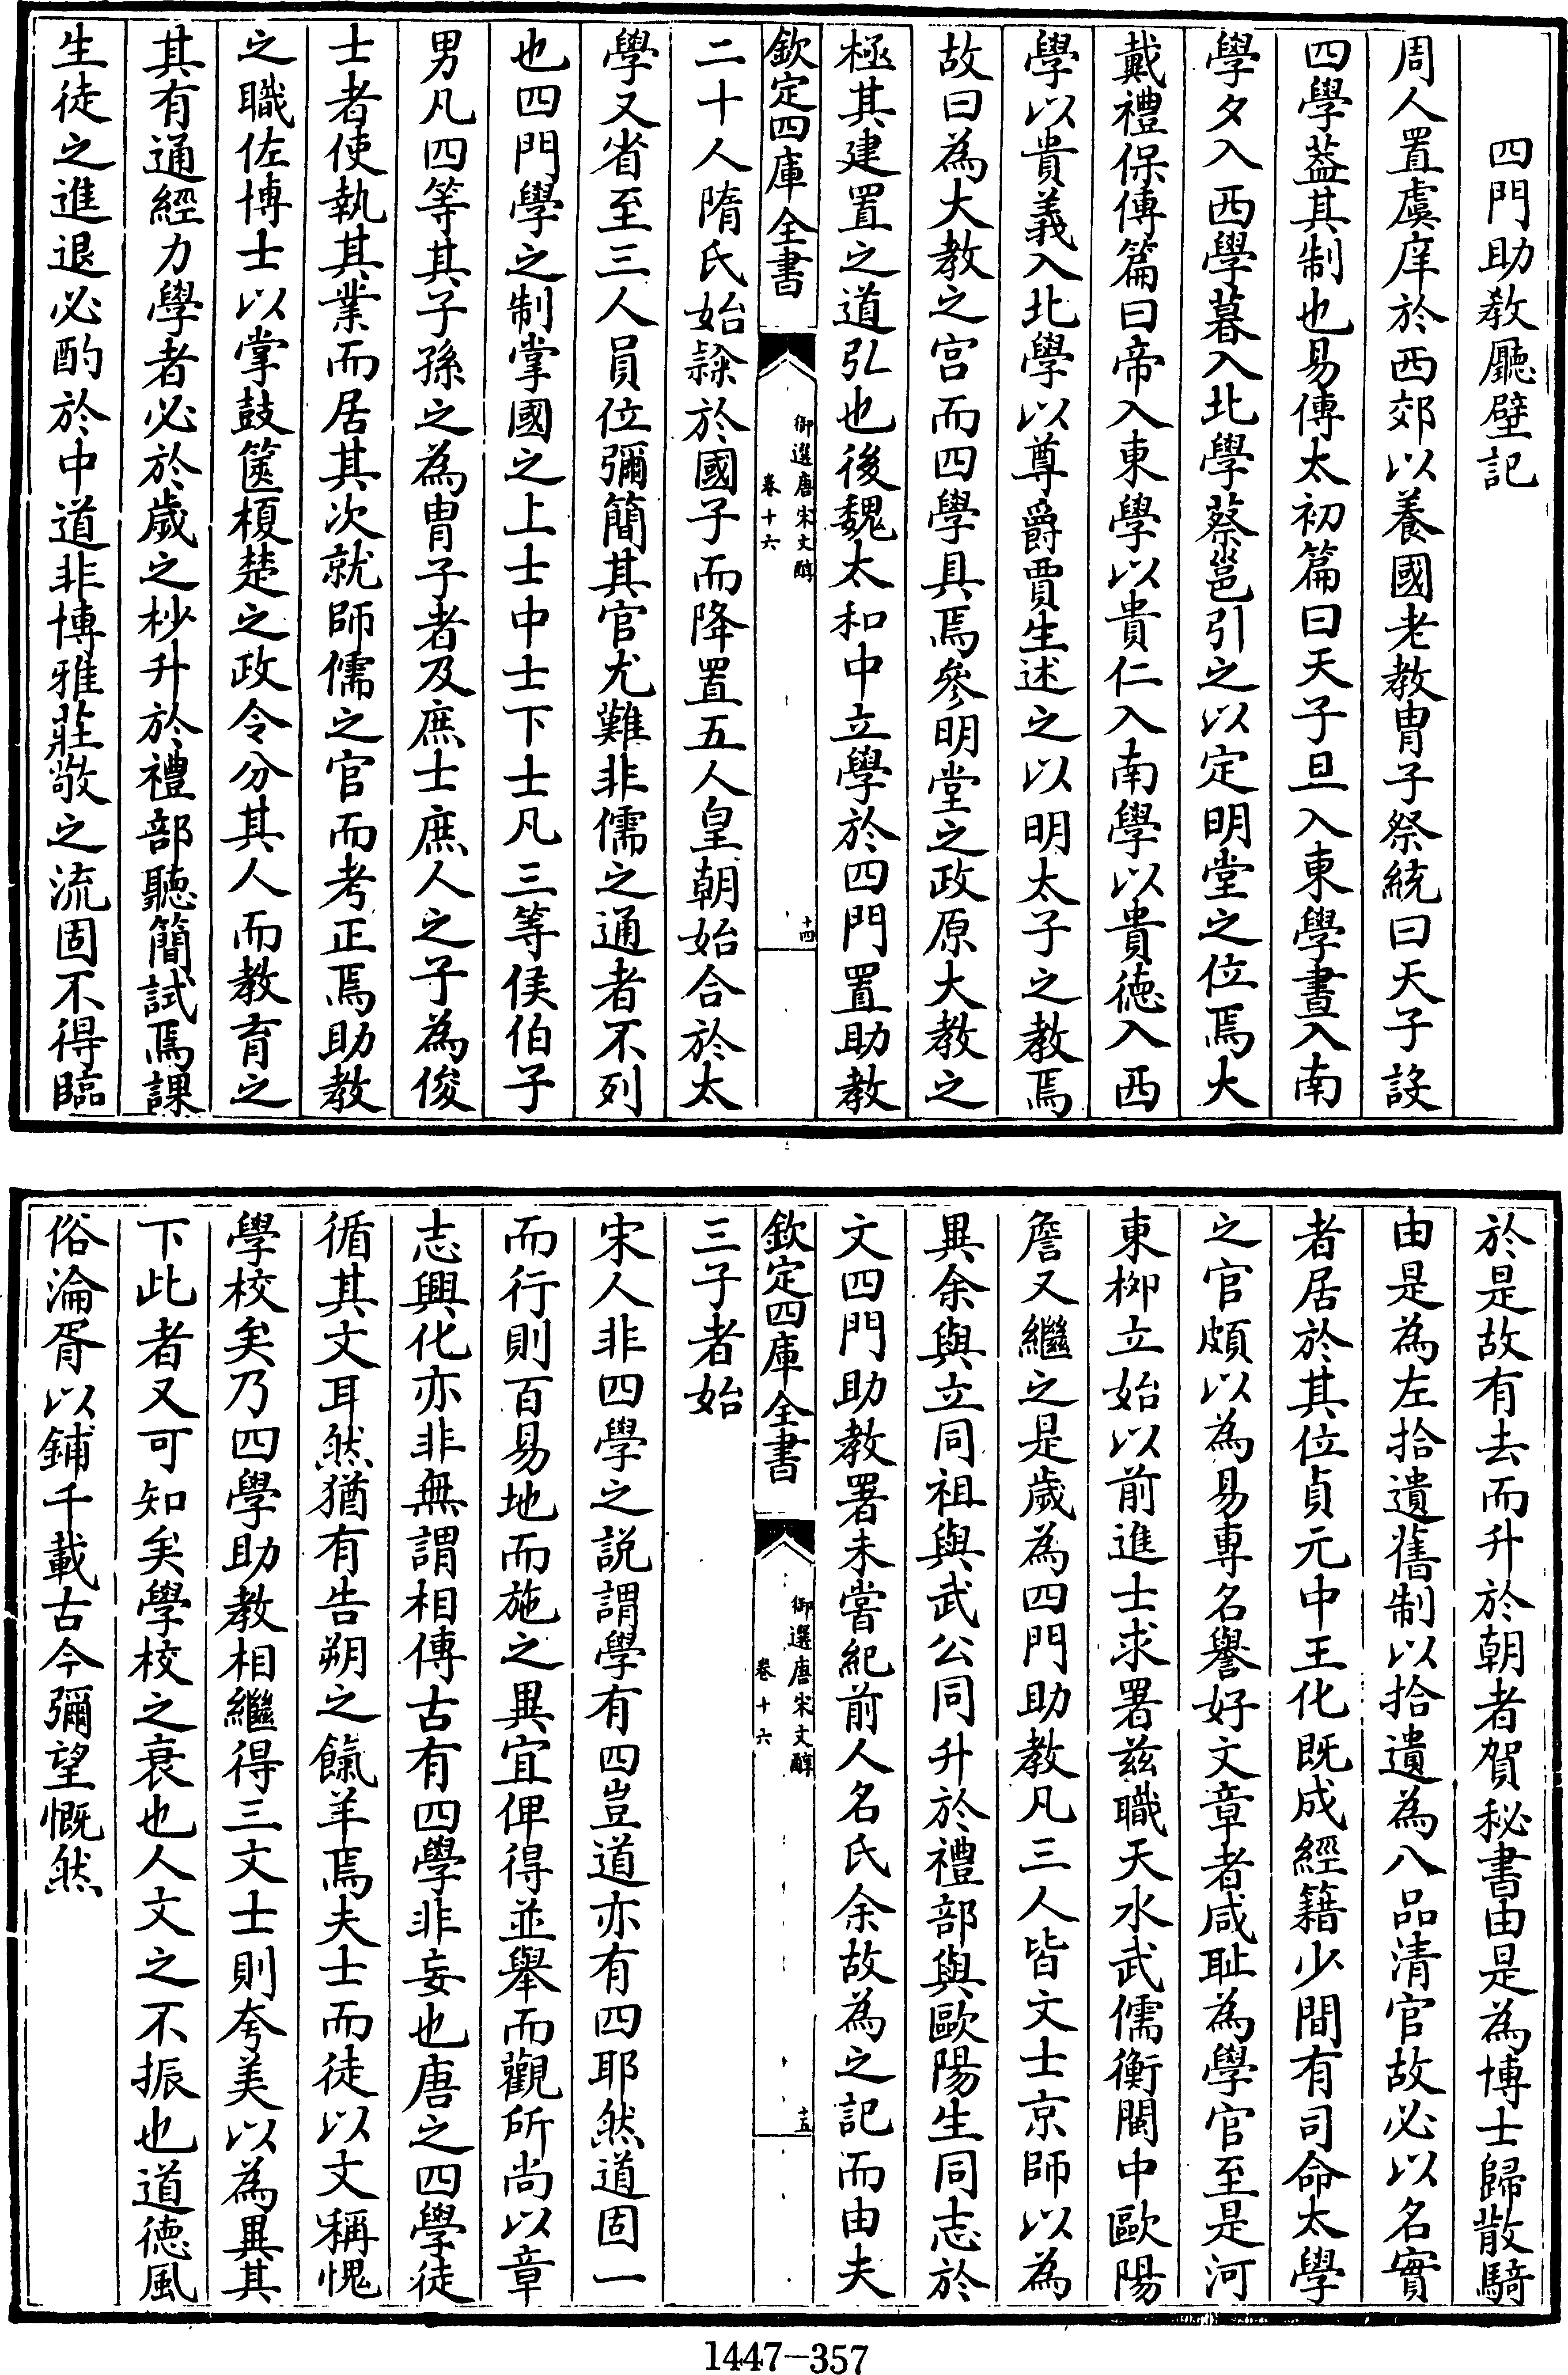 四門助教廳壁記
周人置虞庠於西郊以養國老教胄子祭統曰天子設
四學葢其制也易傳太初篇曰天子旦入東學晝入南
學夕入西學暮入北學蔡邕引之以定明堂之位焉大
戴禮保傅篇曰帝入東學以貴仁入南學以貴徳入西
學以貴義入北學以尊爵賈生述之以明太子之教焉
故曰為大教之宫而四學具焉參明堂之政原大教之
極其建置之道弘也後魏太和中立學於四門置助教
欽定四庫全書
御選唐宋文醇
卷十六
十四
二十人隋氏始𨽻於國子而降置五人皇朝始合於太
學又省至三人員位彌簡其官尤難非儒之通者不列
也四門學之制掌國之上士中士下士凡三等侯伯子
男凡四等其子孫之為胄子者及庶士庶人之子為俊
士者使執其業而居其次就師儒之官而考正焉助教
之職佐博士以掌鼓篋榎楚之政令分其人而教育之
其有通經力學者必於歲之杪升於禮部聽簡試焉課
生徒之進退必酌於中道非博雅莊敬之流固不得臨
於是故有去而升於朝者賀秘書由是為博士歸散騎
由是為左拾遺舊制以拾遺為八品清官故必以名實
者居於其位貞元中王化既成經籍少間有司命太學
之官頗以為易專名譽好文章者咸耻為學官至是河
東栁立始以前進士求署兹職天水武儒衡閩中歐陽
詹又繼之是歲為四門助教凡三人皆文士京師以為
異余與立同祖與武公同升於禮部與歐陽生同志於
文四門助教署未嘗紀前人名氏余故為之記而由夫
欽定四庫全書
御選唐宋文醇
卷十六
十五
三子者始
宋人非四學之説謂學有四豈道亦有四耶然道固一
而行則百易地而施之異宜俾得並舉而觀所尚以章
志興化亦非無謂相傳古有四學非妄也唐之四學徒
循其文耳然猶有告朔之餼羊焉夫士而徒以文稱愧
學校矣乃四學助教相繼得三文士則夸美以為異其
下此者又可知矣學校之衰也人文之不振也道徳風
俗淪胥以鋪千載古今彌望慨然
1447—357